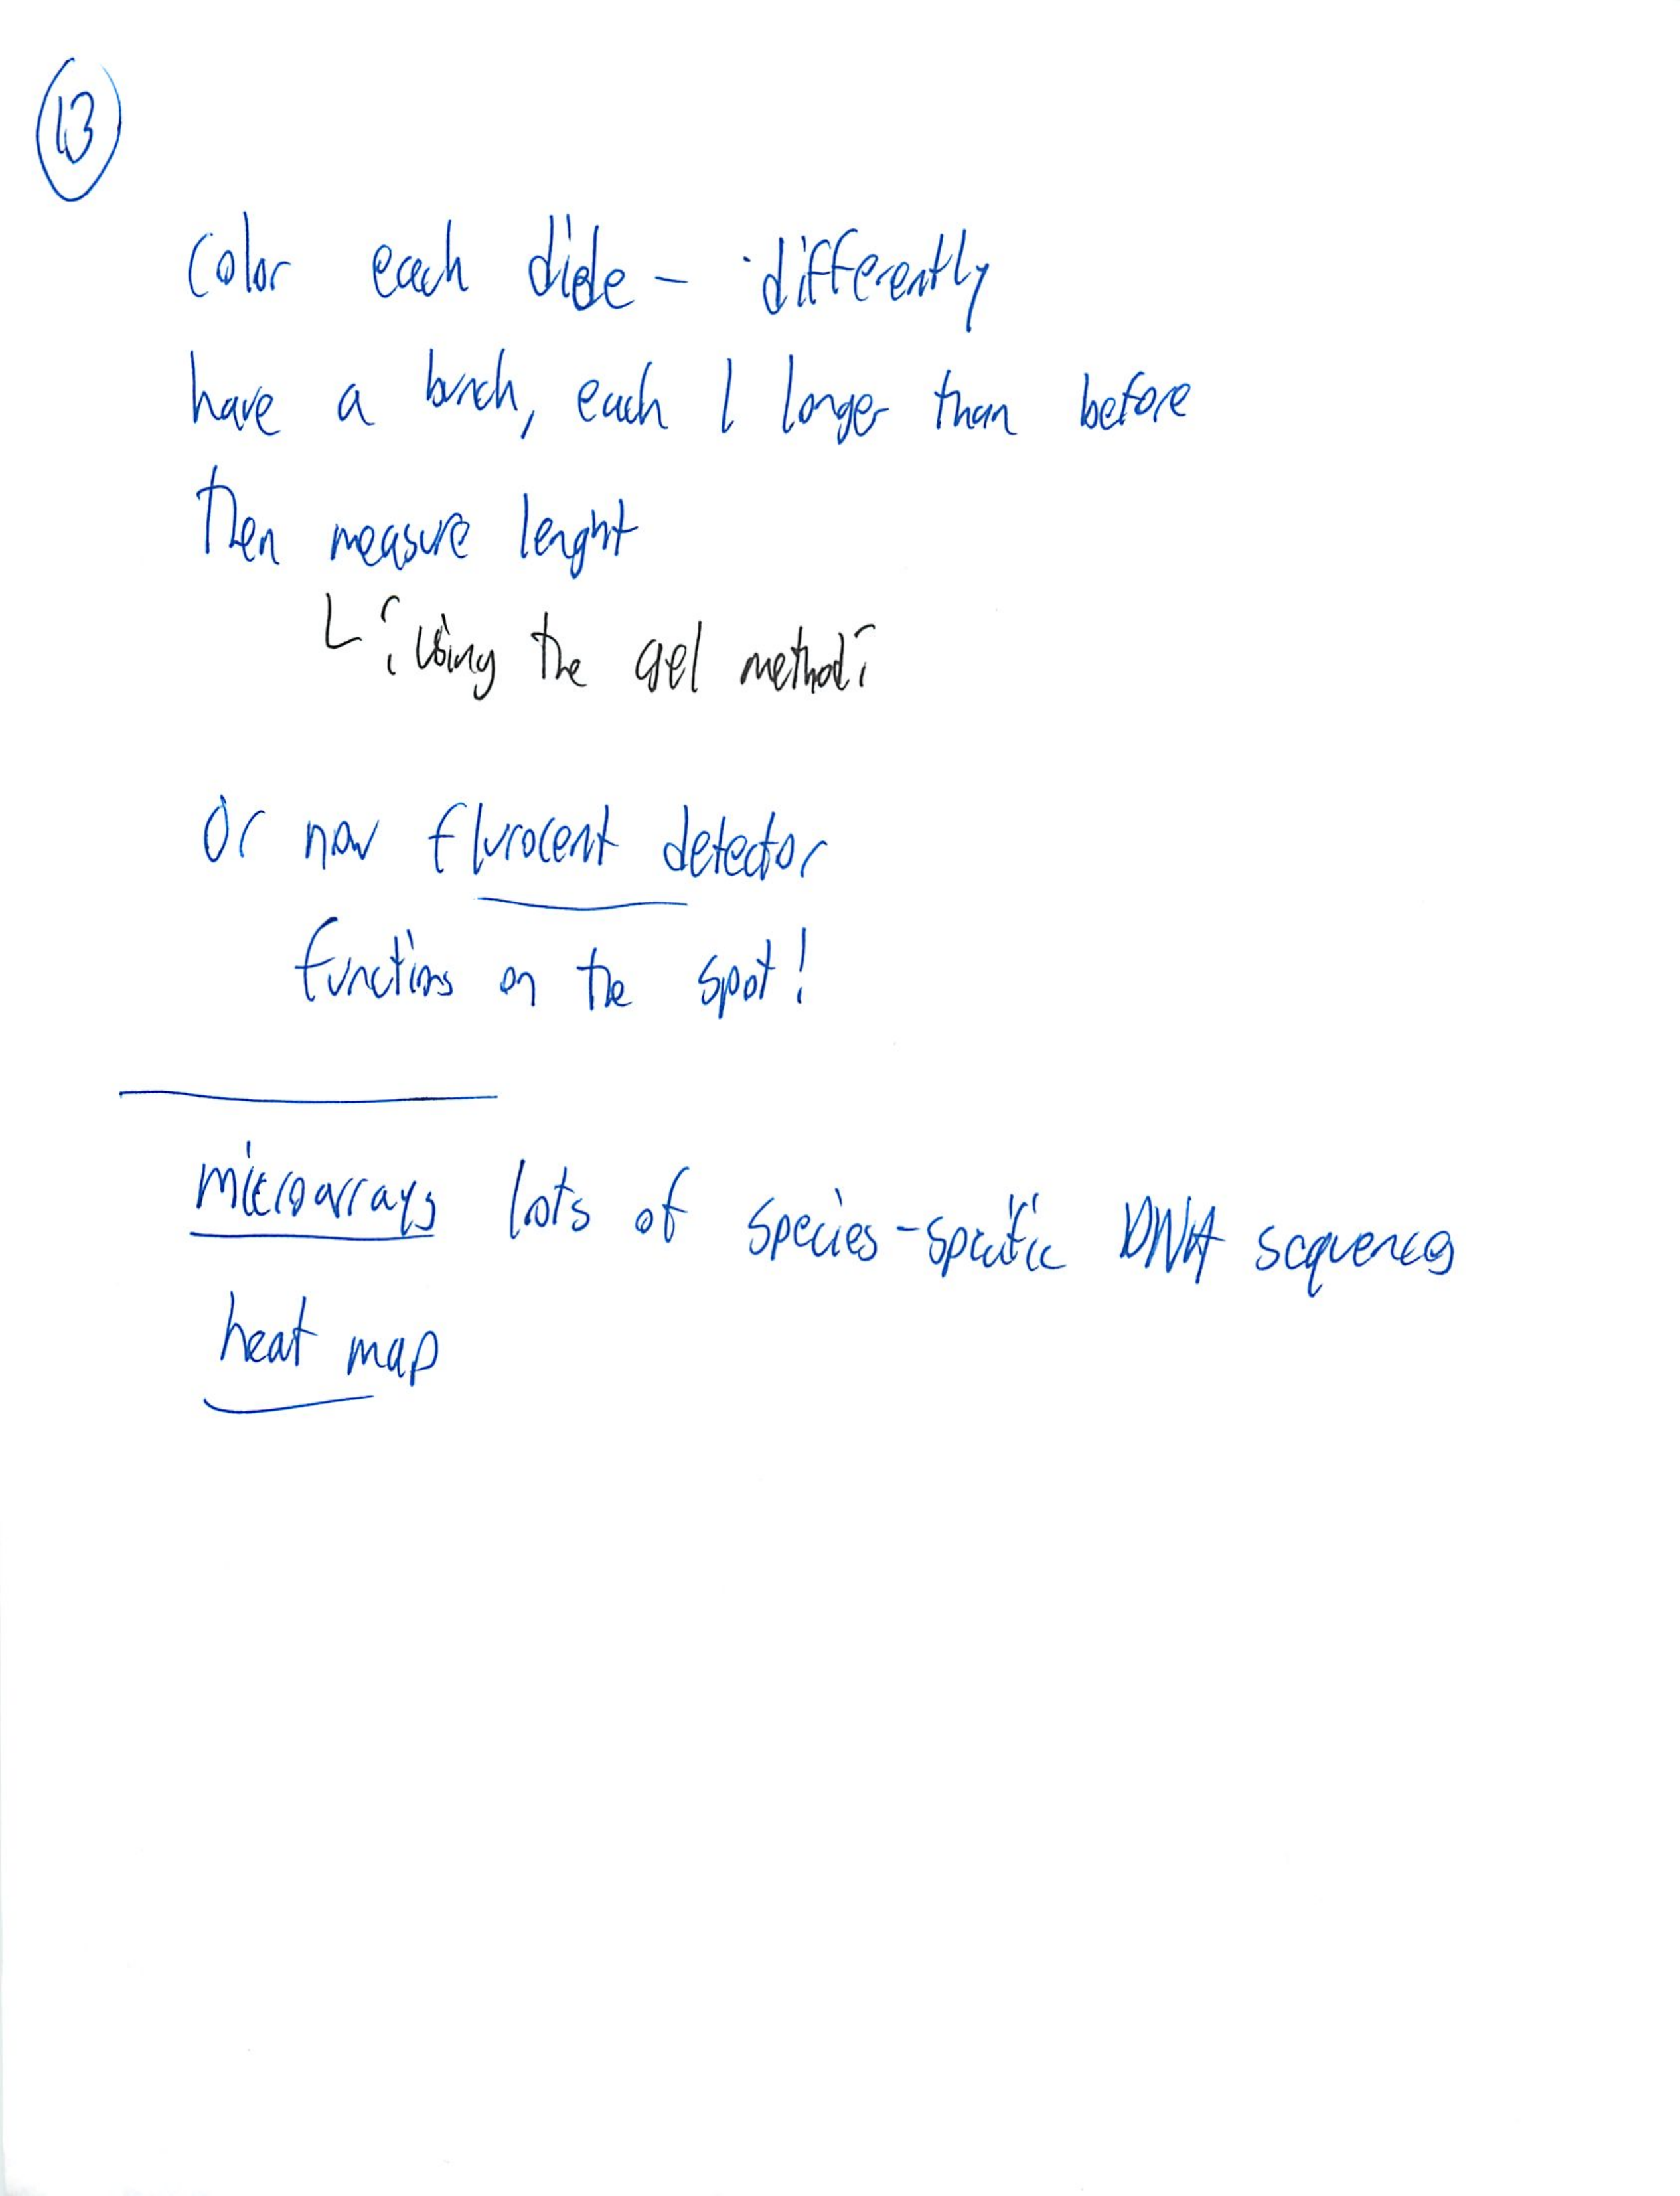 13
Color each dide - differently
have a bunch, each 1 longer than before
Then measure lenght
└ ¿ Using the gel method?
Or now flurocent detector
functions on the spot!
microarrays lots of species-specific DNA sequences
heat map